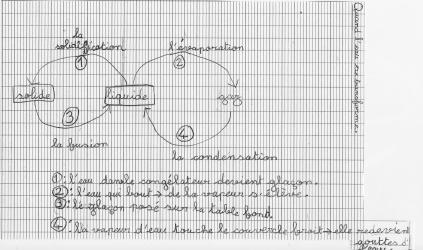 Quand l'eau se transforme.
la
solidification
l'évaporation
①
②
solide
liquide
gaz
③
④
la fusion
la condensation
①: l'eau dans le congélateur devient glaçon.
②: l'eau qui bout → de la vapeur s'élève.
③: le glaçon posé sur la table fond.
④: la vapeur d'eau touche le couvercle froid → elle redevient
gouttes d'